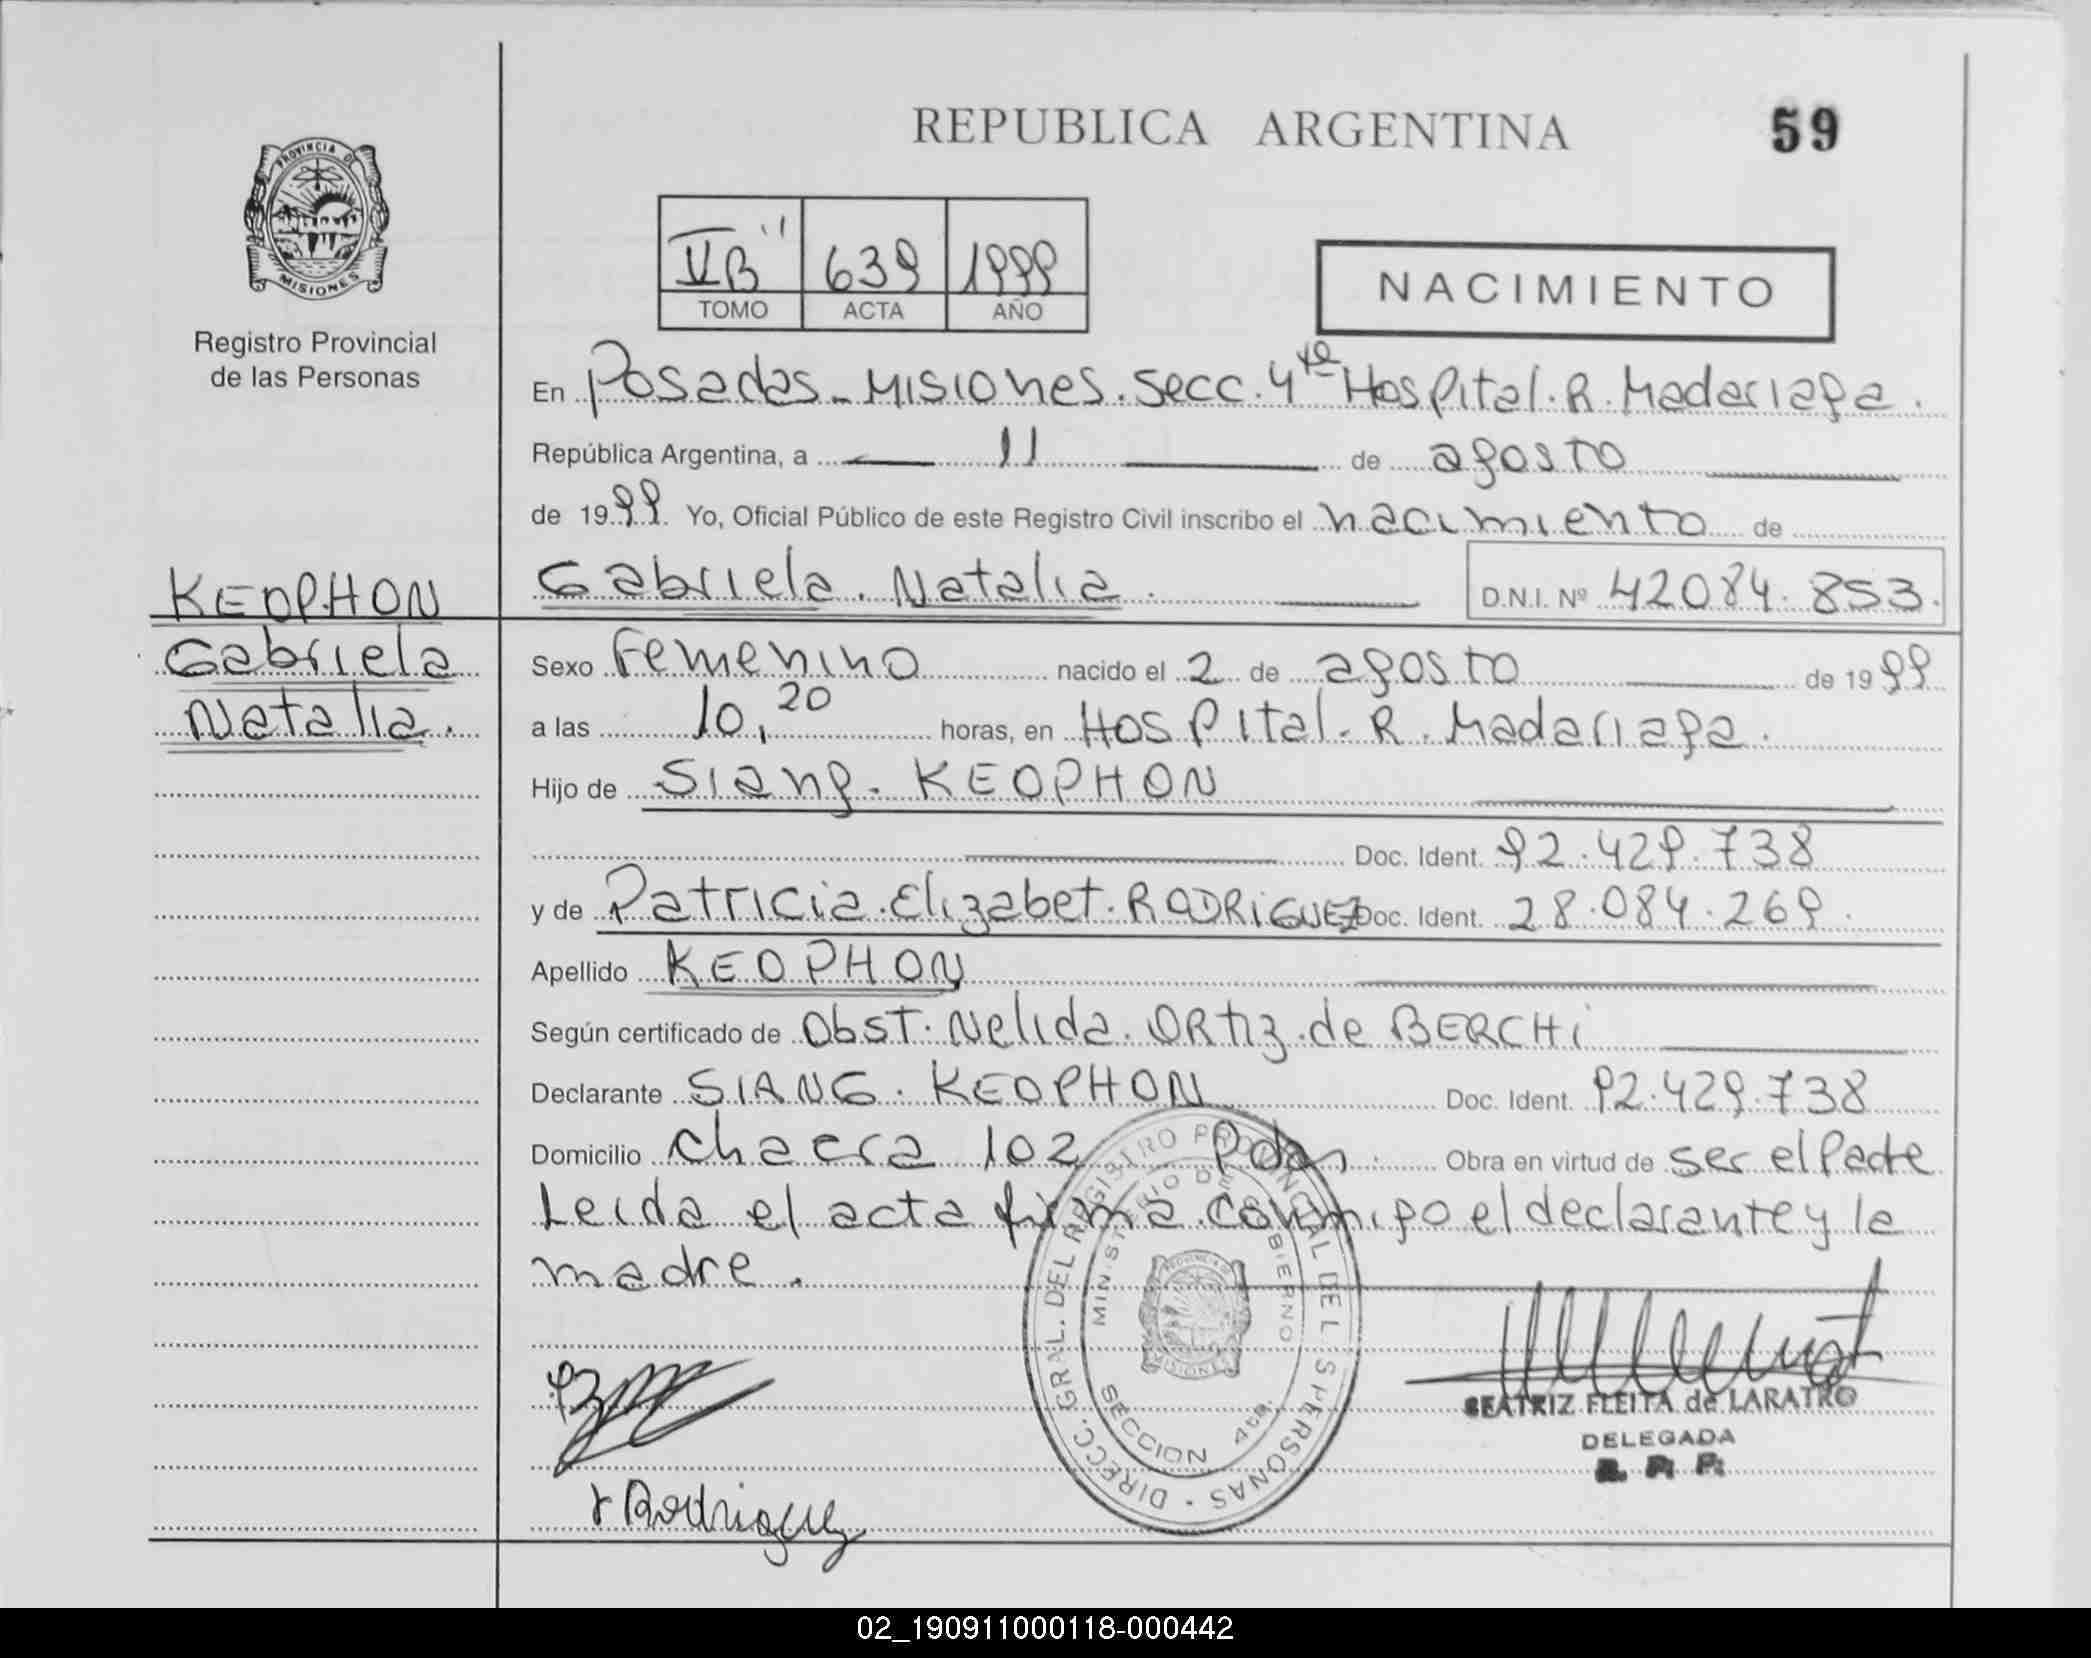 REPUBLICA ARGENTINA 59
PROVINCIA DE
MISIONES
Registro Provincial
de las Personas
VB" 639 1999
TOMO ACTA AÑO
NACIMIENTO
En Posadas - Misiones. Secc. 4ta Hospital. R. Madariaga.
República Argentina, a 11 de agosto
de 1999. Yo, Oficial Público de este Registro Civil inscribo el nacimiento de
Gabriela. Natalia. D.N.I. Nº 42084.853.
KEOPHON
Gabriela
Natalia.
Sexo Femenino nacido el 2 de agosto de 1999
a las 10,20 horas, en Hospital. R. Madariaga.
Hijo de Siang. KEOPHON
Doc. Ident. 92.429.738
y de Patricia. Elizabet. RODRiGUEZ Doc. Ident. 28.084.269.
Apellido KEOPHON
Según certificado de Obst. Nelida. ORtiz. de BERCHi
Declarante SIANG. KEOPHON Doc. Ident. 92.429.738
Domicilio chacra 102 Pdas. Obra en virtud de ser el Padre
Leida el acta firma conmigo el declarante y la
madre.
DIRECC. GRAL. DEL REGISTRO PROVINCIAL DE L S PERSONAS
MINISTERIO DE GOBIERNO
SECCION 4ta.
MISIONES
BEATRIZ FLEITA de LARATRO
DELEGADA
R. P. P.
Rodriguez
02_190911000118-000442